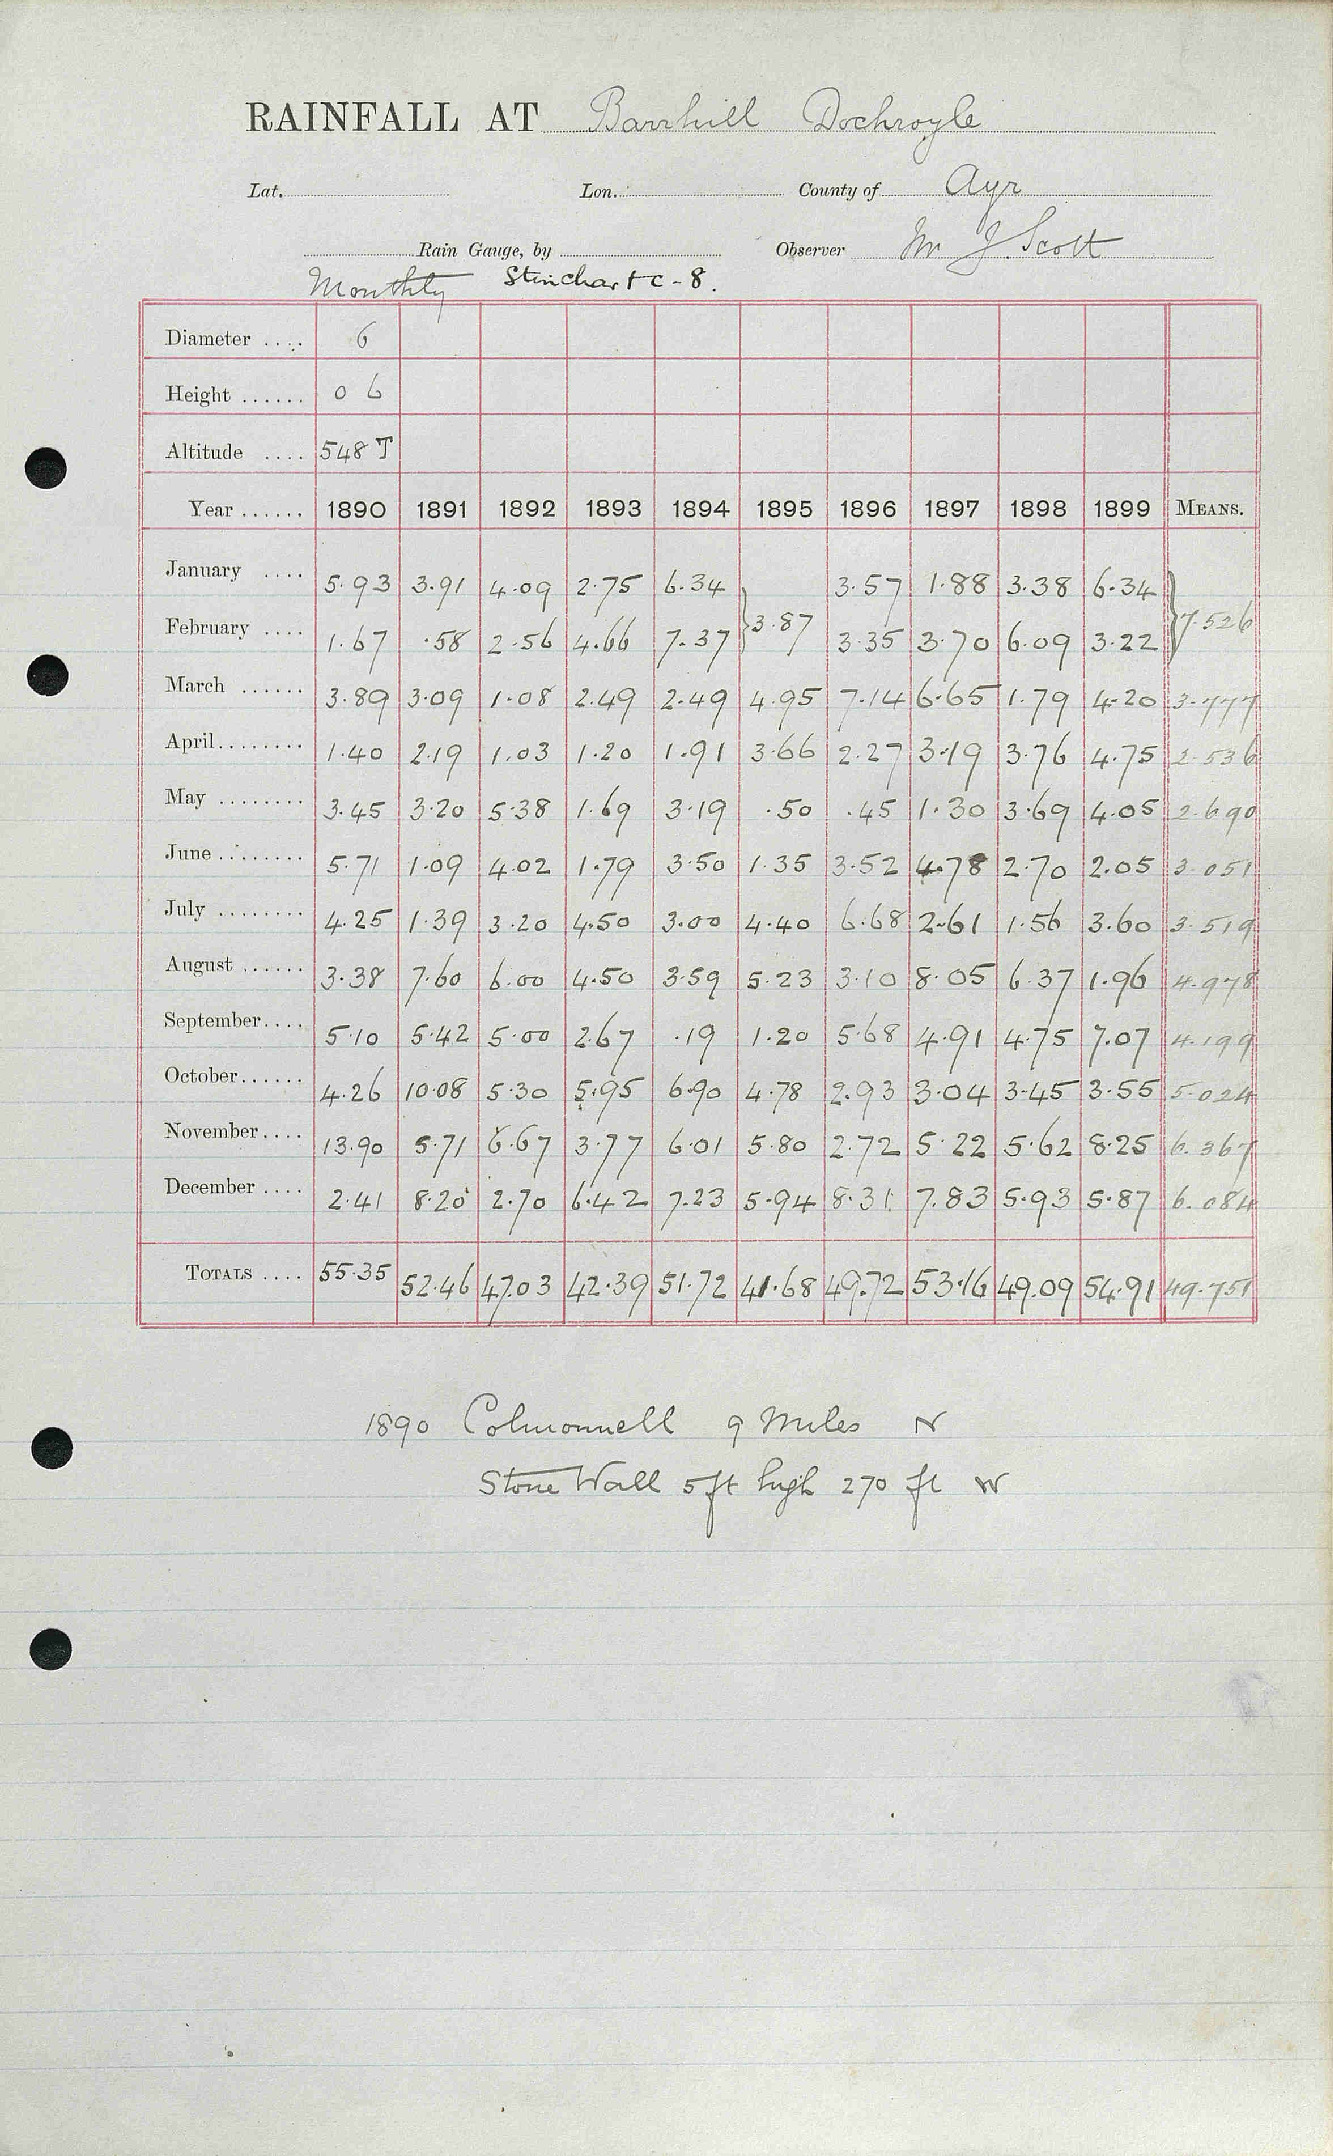 RAINFALL AT Barrhill Dochroyle
Lat. Lon. County of Ayr
Rain Gauge, by Observer Mr J. Scott
Monthly Stinchar + c - 8.
Diameter .... 6
Height ...... 0 6
Altitude .... 548 T
Year ...... 1890 1891 1892 1893 1894 1895 1896 1897 1898 1899 MEANS.
January .... 5.93 3.91 4.09 2.75 6.34 3.57 1.88 3.38 6.34
3.87 7.526
February .... 1.67 .58 2.56 4.66 7.37 3.35 3.70 6.09 3.22
March ...... 3.89 3.09 1.08 2.49 2.49 4.95 7.14 6.65 1.79 4.20 3.777
April........ 1.40 2.19 1.03 1.20 1.91 3.66 2.27 3.19 3.76 4.75 2.536
May ........ 3.45 3.20 5.38 1.69 3.19 .50 .45 1.30 3.69 4.05 2.690
June ........ 5.71 1.09 4.02 1.79 3.50 1.35 3.52 4.78 2.70 2.05 3.051
July ........ 4.25 1.39 3.20 4.50 3.00 4.40 6.68 2.61 1.56 3.60 3.519
August ...... 3.38 7.60 6.00 4.50 3.59 5.23 3.10 8.05 6.37 1.96 4.978
September.... 5.10 5.42 5.00 2.67 .19 1.20 5.68 4.91 4.75 7.07 4.199
October...... 4.26 10.08 5.30 5.95 6.90 4.78 2.93 3.04 3.45 3.55 5.024
November.... 13.90 5.71 6.67 3.77 6.01 5.80 2.72 5.22 5.62 8.25 6.367
December .... 2.41 8.20 2.70 6.42 7.23 5.94 8.31 7.83 5.93 5.87 6.084
TOTALS .... 55.35 52.46 47.03 42.39 51.72 41.68 49.72 53.16 49.09 54.91 49.751
1890 Colmonnell 9 Miles N
Stone Wall 5 ft high 270 ft W